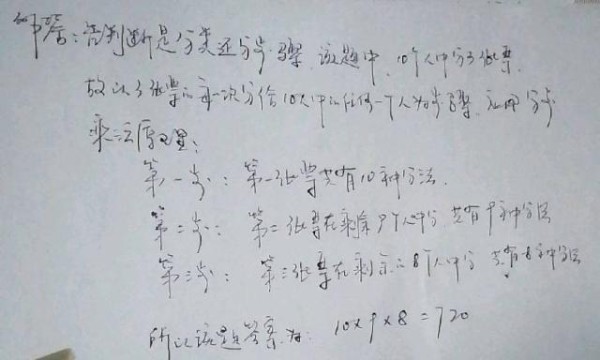 解答：需判断是分类还分步骤. 该题中, 10个人中分3张票.
故以3张票的每一次分给10人中的任何一个人为步骤, 应用分步
乘法原理:
第一步: 第一张票共有10种分法.
第二步: 第二张票在剩余9个人中分 共有9种分法
第三步: 第三张票在剩余的8个人中分 共有8种分法
所以该题答案为: 10×9×8=720